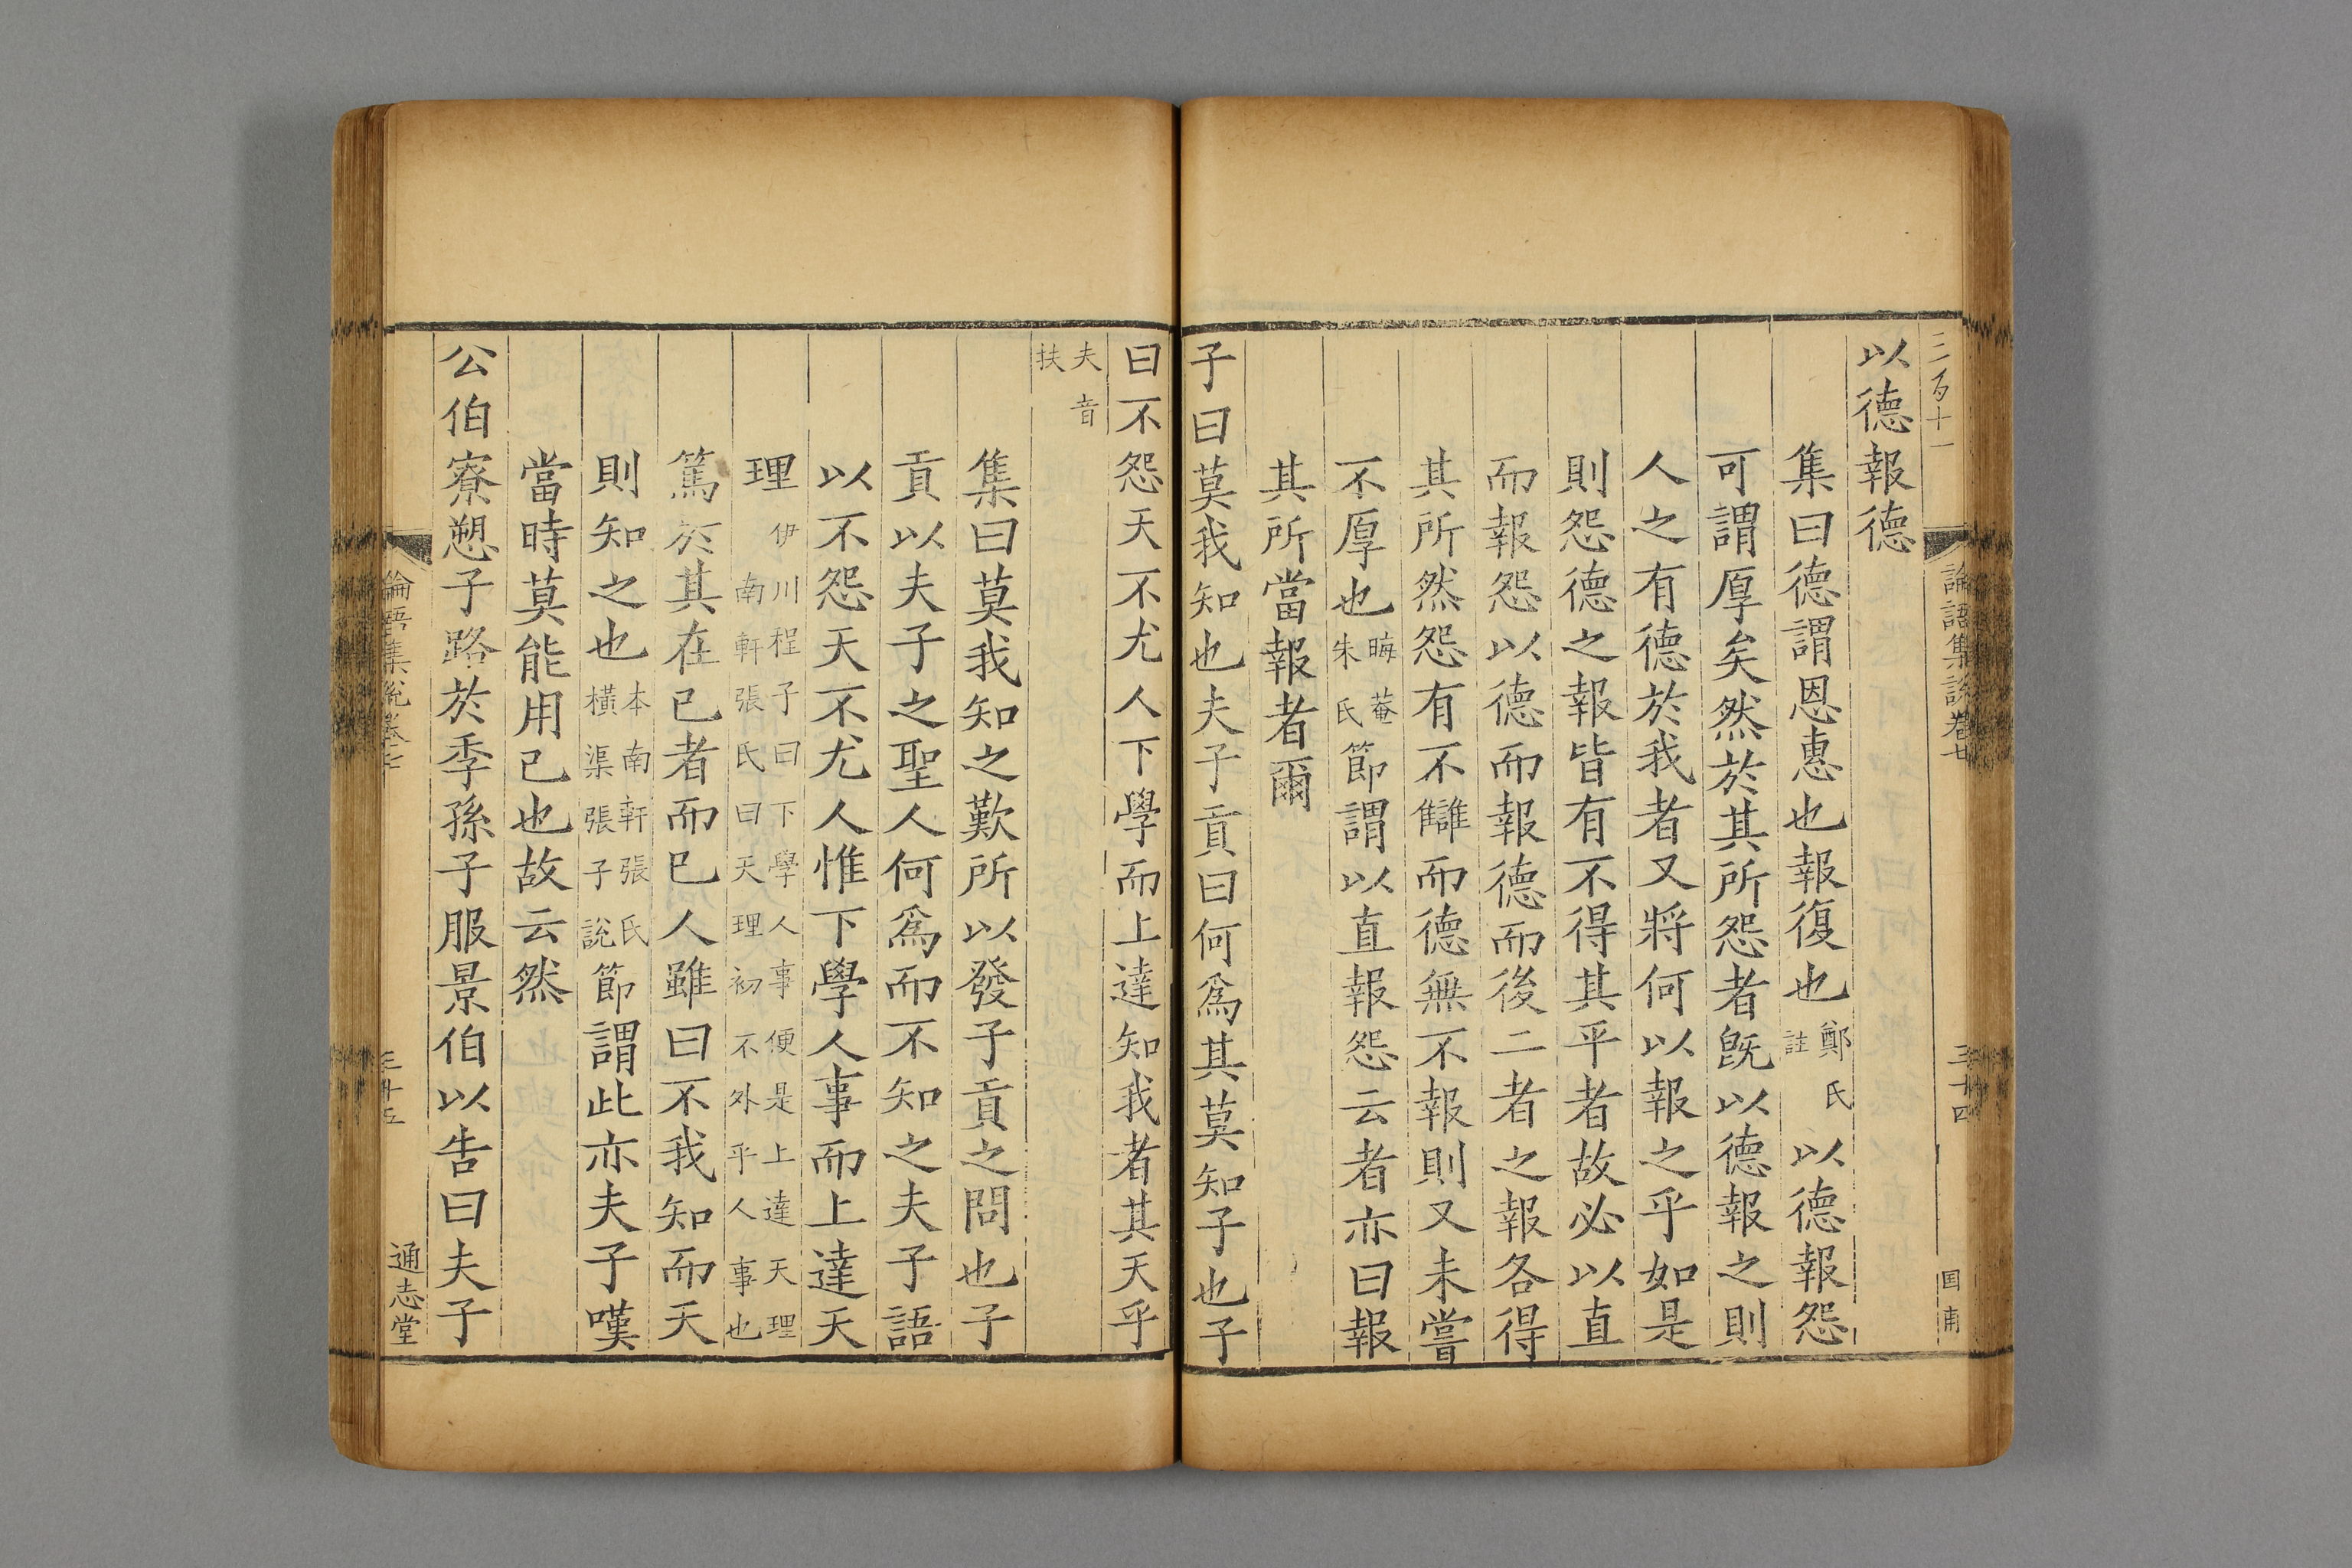 三百十一
論語集說卷七
三十四
国甫
以德報德
集曰德謂恩惠也報復也鄭氏註以德報怨
可謂厚矣然於其所怨者旣以德報之則
人之有德於我者又將何以報之乎如是
則怨德之報皆有不得其平者故必以直
而報怨以德而報德而後二者之報各得
其所然怨有不讎而德無不報則又未嘗
不厚也晦菴朱氏節謂以直報怨云者亦曰報
其所當報者爾
子曰莫我知也夫子貢曰何爲其莫知子也子
曰不怨天不尤人下學而上達知我者其天乎
夫音扶
集曰莫我知之歎所以發子貢之問也子
貢以夫子之聖人何爲而不知之夫子語
以不怨天不尤人惟下學人事而上達天
理伊川程子曰下學人事便是上達天理南軒張氏曰天理初不外乎人事也
篤於其在已者而巳人雖曰不我知而天
則知之也本南軒張氏橫渠張子說節謂此亦夫子嘆
當時莫能用己也故云然
公伯寮愬子路於季孫子服景伯以告曰夫子
論語集說卷七
三十五
通志堂